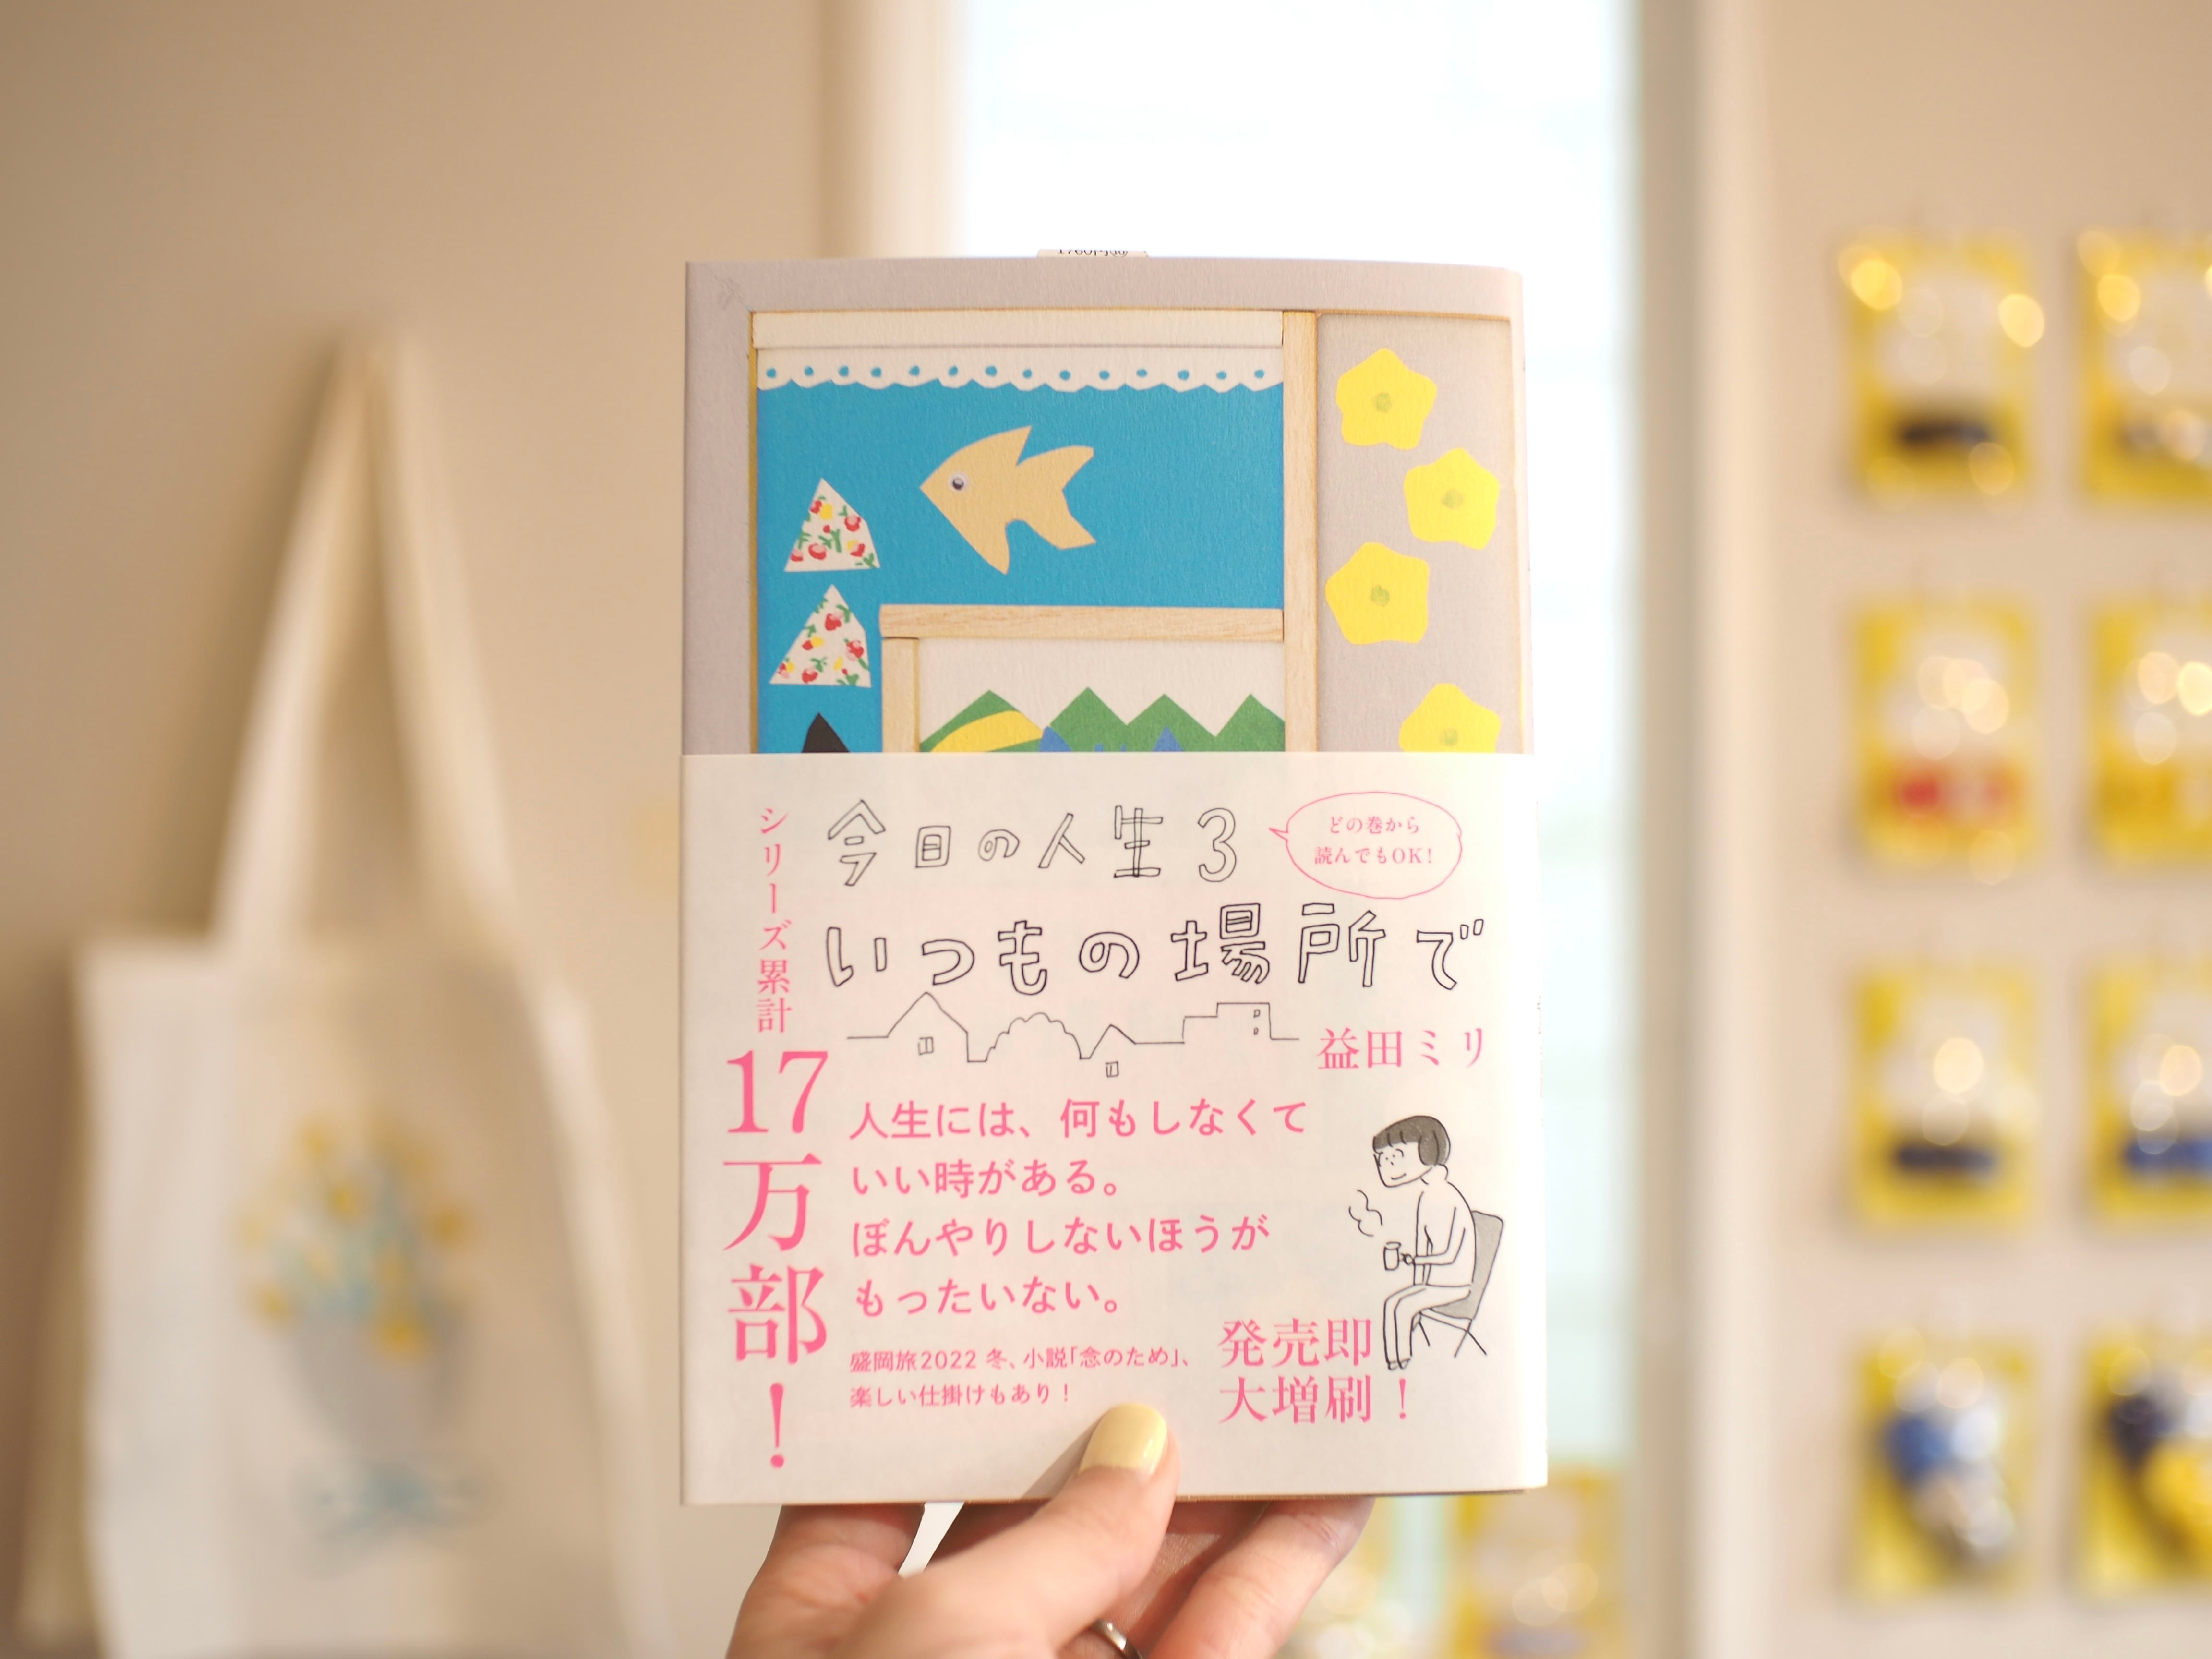 今日の人生3
どの巻から
読んでもOK!
いつもの場所で
益田ミリ
シリーズ累計
17万部!
人生には、何もしなくて
いい時がある。
ぼんやりしないほうが
もったいない。
盛岡旅2022 冬、小説「念のため」、
楽しい仕掛けもあり!
発売即
大増刷!